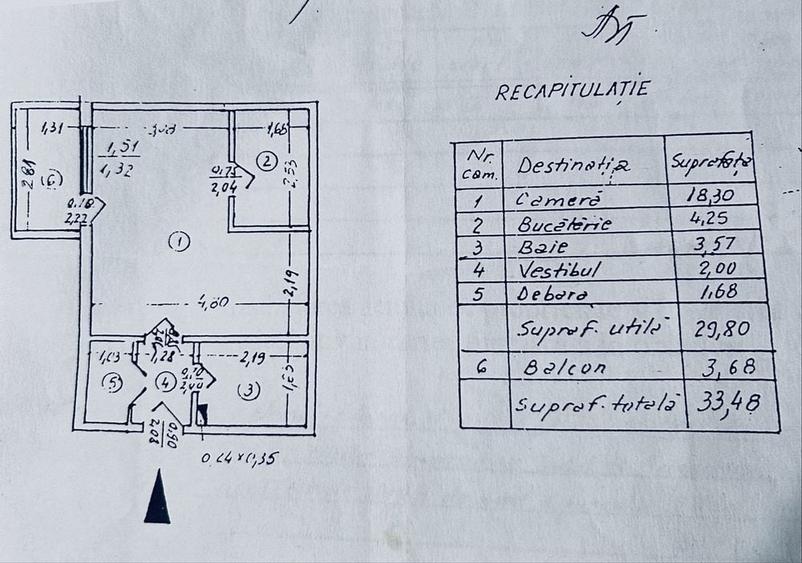 RECAPITULAȚIE
Nr. cam. Destinația Suprafața
1 Cameră 18,30
2 Bucătărie 4,25
3 Baie 3,57
4 Vestibul 2,00
5 Debara 1,68
Supraf. utilă 29,80
6 Balcon 3,68
Supraf. totală 33,48
1,31
1,65
1,51
1,32
2,81
6
2
0,75
2,04
2,53
2,22
1
2,19
4,80
1,03
1,28
2,19
5
4
0,70
3
1,63
0,90
2,08